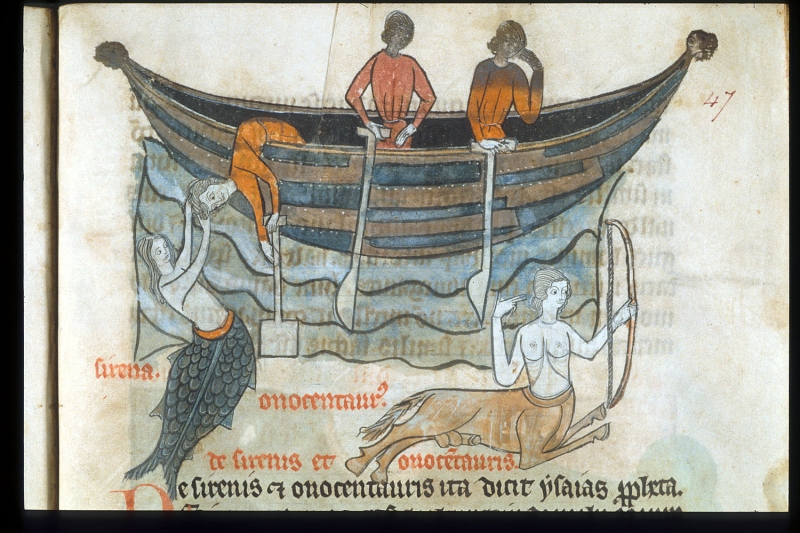 47
sirena.
onocentaurꝰ.
de sirenis et onocētauris.
De sirenis ⁊ onocentauris ita dicit ysaias ꝓpheta.